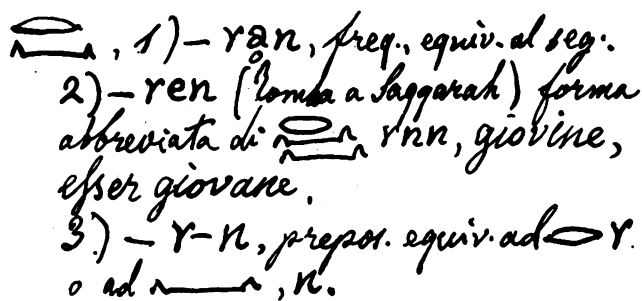 𓂋𓈖, 1) – ran, freq., equiv. al seg.
2) – ren (Tomba a Saqqarah) forma
abbreviata di 𓂋𓈖𓈖 rnn, giovine,
esser giovane.
3.) – r-n, prepos. equiv. ad 𓂋 r.
o ad 𓈖, n.